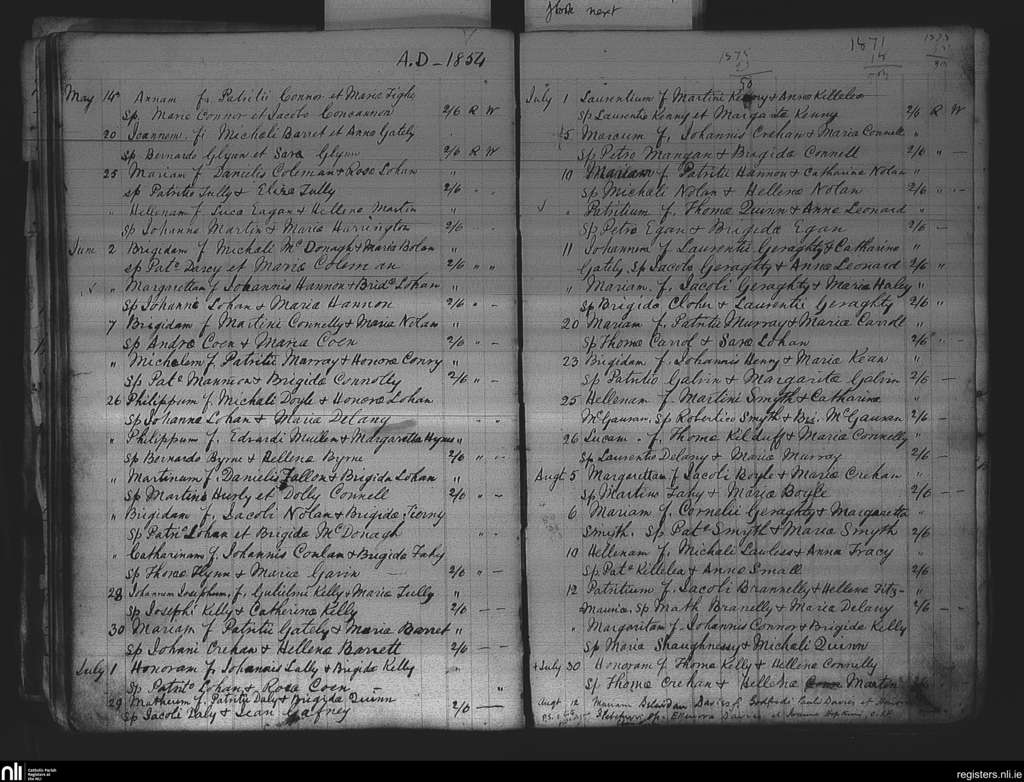 Book next
A.D - 1854
May 14 Annam f. Patritii Connor et Maria Tighe
Sp. Marie Connor et Jacobo Concannon 2/6 R W
20 Joannem fi Michali Barret et Anne Gately
Sp Bernardo Glynn et Sara Glynn 2/6 R W
25 Mariam f Danielis Coleman & Rose Lohan "
Sp Patritio Tully & Eliza Tully 2/6
" Hellenam f Luca Eagan & Hellena Martin "
Sp Johanne Martin & Maria Harrington 2/6
June 2 Brigidam f Michali McDonagh & Maria Bolan "
Sp Patc Darcy et Maria Coleman 2/6 " "
" Margarettam f Johannis Hannon & Bridc Lohan "
Sp Johanne Lohan & Maria Hannon 2/6 " -
7 Brigidam f Martini Connelly & Maria Nolan "
Sp Andra Coen & Maria Coen 2/6 " -
" Michalem f. Patritii Murray & Honora Conry "
Sp Patc Mannion & Brigida Connolly 2/6 " -
26 Philippum f Michali Doyle & Honora Lohan
Sp Johanne Lohan & Maria Delany
" Philippum f. Edvardi Mullen & Margaretta Hynes "
Sp Bernardo Byrne & Hellena Byrne 2/6 " --
" Martinum f Danielis Fallon & Brigida Lohan "
Sp Martino Hurly et Dolly Connell 2/6 " -
" Brigidam f. Jacobi Nolan & Brigida Tierny
Sp Patric Lohan et Brigida McDonagh " -
" Catharinam f. Johannis Conlan & Brigida Fahy
Sp Thoma Flynn & Maria Gavin 2/6 " -
28 Johannem Josephum, f. Gulielmi Kelly & Maria Tully "
Sp Joseph Kelly & Catherina Kelly 2/6 - -
30 Mariam f Patritii Gately & Maria Barret "
Sp Johani Crehan & Hellena Barrett 2/6 - -
July 1 Honoram f Johannis Lally & Brigida Kelly
Sp Patrito Lohan & Rosa Coen "
29 Matheum f Patritii Daly & Brigida Quinn
Sp Jacobi Daly & Jean Gafney 2/6 -
1871
July 1 Laurentium f Martini Kenny & Anna Killelea
Sp Laurentio Kenny et Margarita Kenny 2/6 R W
5 Marcum f. Johannis Crehan & Maria Connell "
Sp Petro Mangan & Bragida Connell 2/6 " -
10 Mariam f Patritii Hannon & Catharina Nolan "
Sp Michali Nolan & Hellena Nolan 2/6 " -
" Patritium f. Thoma Quinn & Anna Leonard "
Sp Petro Egan & Brigida Egan 2/6 -
11 Johannem f. Laurentii Geraghty & Catharina
Gately. Sp Jacobo Geraghty & Anna Leonard 2/6 "
" Mariam. f. Jacobi Geraghty & Maria Haly "
Sp Brigida Cloher & Laurentio Geraghty 2/6 "
20 Mariam f. Patritii Murray & Maria Carrol "
Sp Thoma Carrol & Sara Lohan 2/6 -
23 Brigidam f. Johannis Henry & Maria Kean "
Sp Patritio Galvin & Margarita Galvin 2/6 -
25 Hellenam f. Martini Smyth & Catharina
McGauran. Sp Robertico Smyth & Bri. McGauran 2/6 -
26 Lucam . f. Thoma Kilduff & Maria Connelly
Sp Laurentio Delany & Maria Murray 2/6 -
Augt 5 Margarettam f Jacobi Boyle & Maria Crehan "
Sp Martino Fahy & Maria Boyle 2/6 - -
6 Mariam f. Cornelii Geraghty & Margaretta
Smyth. Sp Patc Smyth & Maria Smyth 2/6
10 Hellenam f. Michali Lawless & Anna Tracy "
Sp Patc Killelea & Anna Small 2/6
12 Patritium f. Jacobi Brannelly & Hellena Fitz-
Maurice, Sp Math Branelly & Maria Delany 2/6 - -
" Margaritam f. Johannis Connor & Brigida Kelly
Sp Maria Shaughnessy & Michali Quinn
+ July 30 Honoram f Thoma Kelly & Hellena Connelly
Sp Thoma Crehan & Hellena Marten 2/6
Augt 12 Mariam Davies f. Godfredi Paul Davies et
Sp. Elenora Davies et Joanna Hopkins
nli Catholic Parish Registers at the NLI
registers.nli.ie